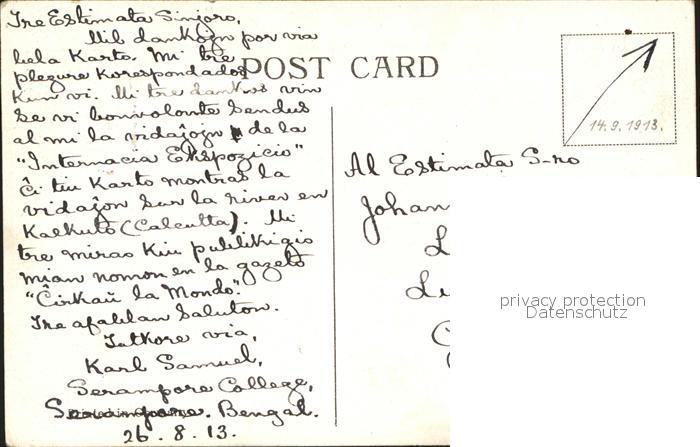 Tre Estimata Sinjoro,
Mil dankojn por via
bela Karto. Mi tre
plezure Korespondados
Kun vi. Mi tre dankus vin
se vi bonvolonte sendus
al mi la vidajojn de la
"Internacia Ekspozicio"
Ĉi tiu Karto montras la
vidaĵon sur la river en
Kalkuto (Calcutta). Mi
tre miras Kiu publikigis
mian nomon en la gazeto
"Ĉirkaŭ la Mondo".
Tre afablan Saluton.
Tutkore via,
Karl Samuel,
Serampore College,
Serampore. Bengal.
26.8.13.
POST CARD
14.9.1913.
Al Estimata S-ro
Johan
privacy protection
Datenschutz